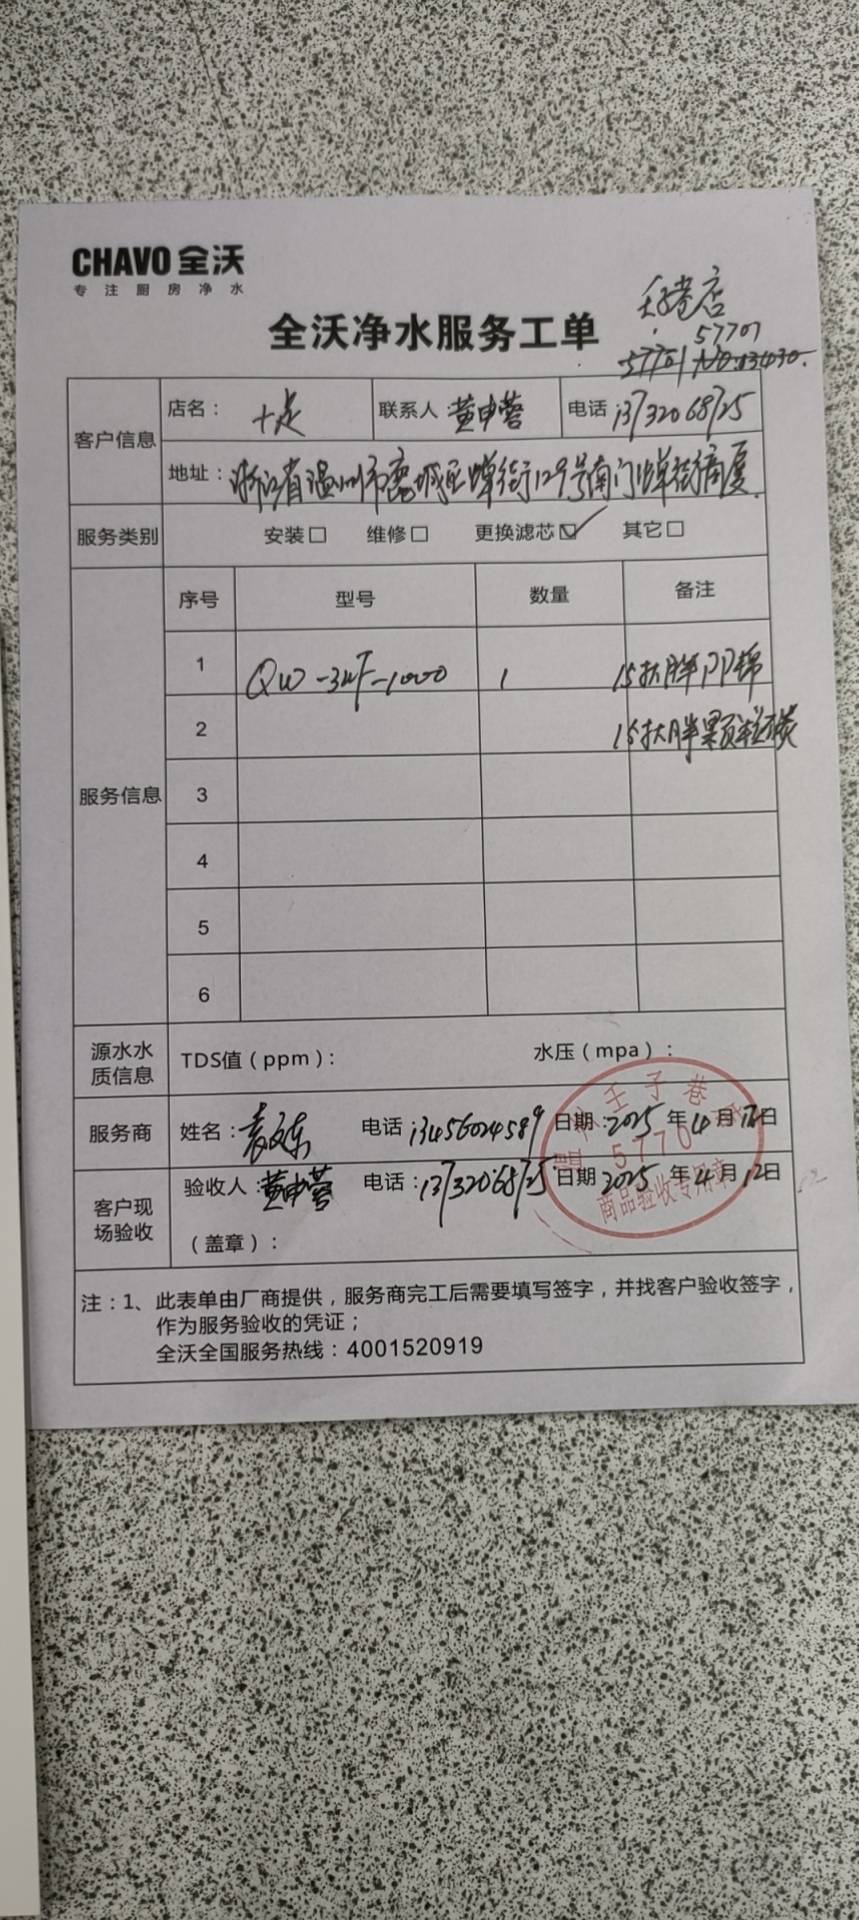 CHAVO 全沃
专注厨房净水
壬子巷店
全沃净水服务工单
57701
57701 No.03430.
客户信息
店名： 十足 联系人 黄申蓉 电话 13732068725
地址： 浙江省温州市鹿城区蝉街129号南门蝉街商厦
服务类别 安装□ 维修□ 更换滤芯☑ 其它□
服务信息
序号 型号 数量 备注
1 QW-3UF-1000 1 15寸大胖PP棉
2 15寸大胖颗粒炭
3
4
5
6
源水水质信息 TDS值（ppm）： 水压（mpa）：
服务商 姓名： 袁文东 电话 13456024589 日期：2025 年 4 月 12 日
客户现场验收 验收人： 黄申蓉 电话：13732068725 日期 2025 年 4 月 12 日
（盖章）：
壬子巷
5770
商品验收专用章
注：1、此表单由厂商提供，服务商完工后需要填写签字，并找客户验收签字，
作为服务验收的凭证；
全沃全国服务热线：4001520919